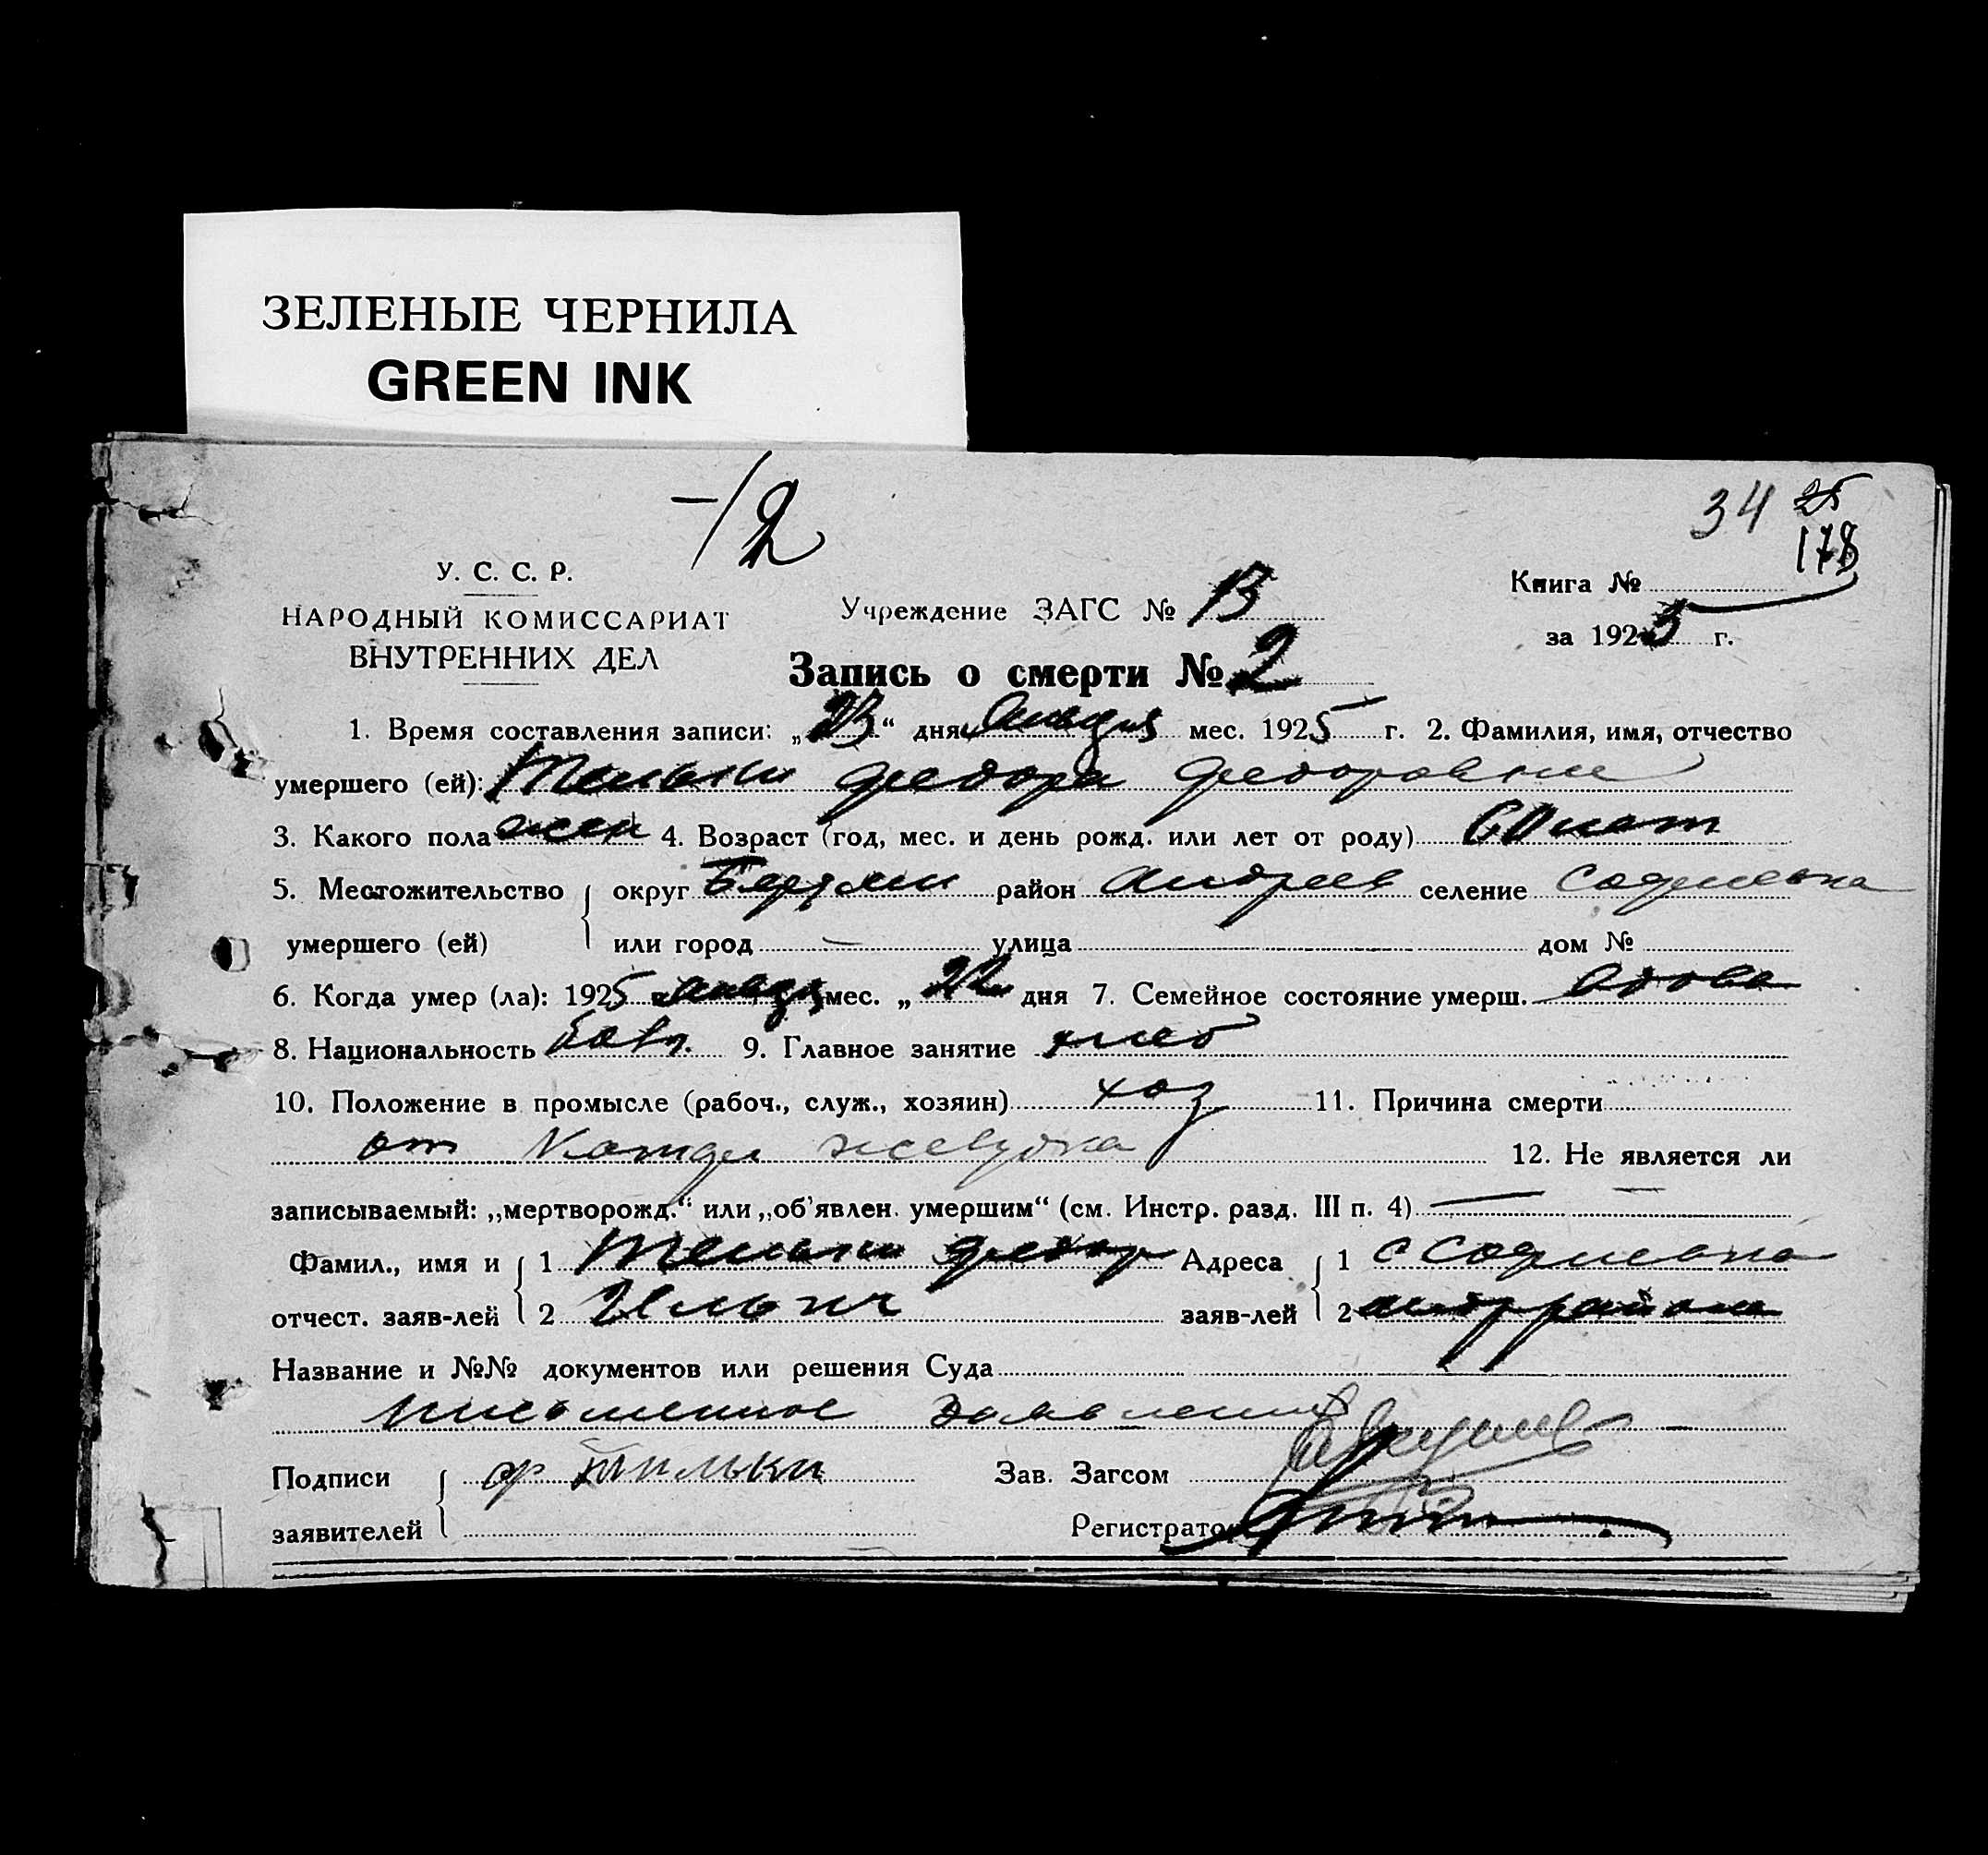 ЗЕЛЕНЫЕ ЧЕРНИЛА
GREEN INK
34 25
178
-/2
У. С. С. Р.
НАРОДНЫЙ КОМИССАРИАТ
ВНУТРЕННИХ ДЕЛ
Учреждение ЗАГС № 13
Книга №
за 1925 г.
Запись о смерти № 2
1. Время составления записи: „23“ дня января мес. 1925 г. 2. Фамилия, имя, отчество
умершего (ей): федора федоровна
3. Какого пола жен 4. Возраст (год, мес. и день рожд. или лет от роду) лет
5. Местожительство округ район Андреев селение
умершего (ей) или город — улица дом №
6. Когда умер (ла): 1925 января мес. „22 дня 7. Семейное состояние умерш. вдова
8. Национальность болг. 9. Главное занятие хлеб
10. Положение в промысле (рабоч., служ., хозяин) хоз 11. Причина смерти
от желудка 12. Не является ли
записываемый: „мертворожд.“ или „об'явлен. умершим“ (см. Инстр. разд. III п. 4) —
Фамил., имя и 1 федор Адреса 1 с
отчест. заяв-лей 2 Ильич заяв-лей 2 андр района
Название и №№ документов или решения Суда
письменное заявление
Подписи ф Зав. Загсом
заявителей Регистратор